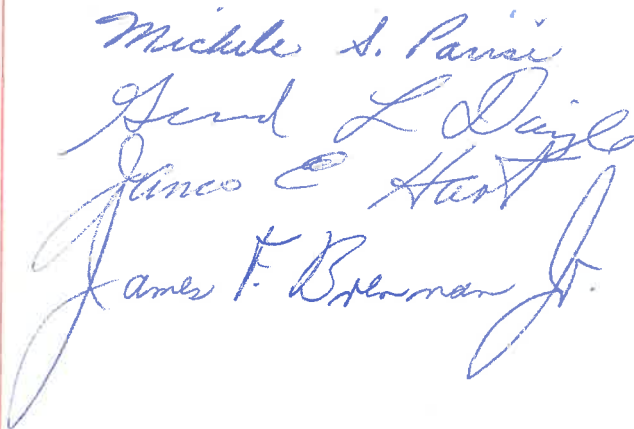 Michele S. Parisi
L Daigle
James E Hart
James F. Brennan Jr.